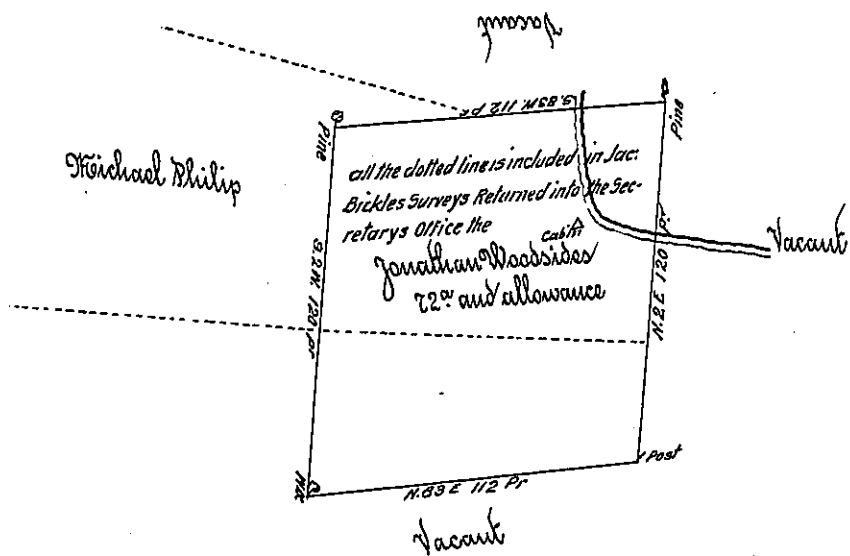 Vacant
S. 83 W. 112 pr
Pine
Pine
Michael Philip
all the dotted line is included in Jac:
Bickles Surveys Returned into the Sec-
retarys Office the
Cabin
Jonathan Woodsides
72a and allowance
Vacant
S. 2 W. 120 pr
N. 2 E 120 P.
Post
N. 83 E 112 Pr
Vacant